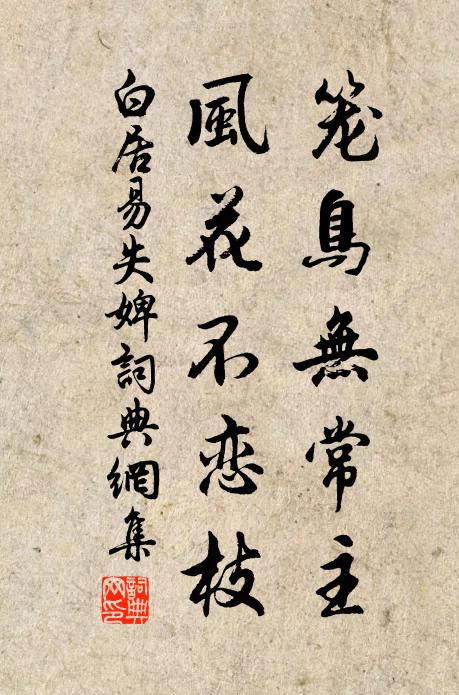 笼鳥無常主
風花不恋枝
白居易失婢詞典網集
詞典網印